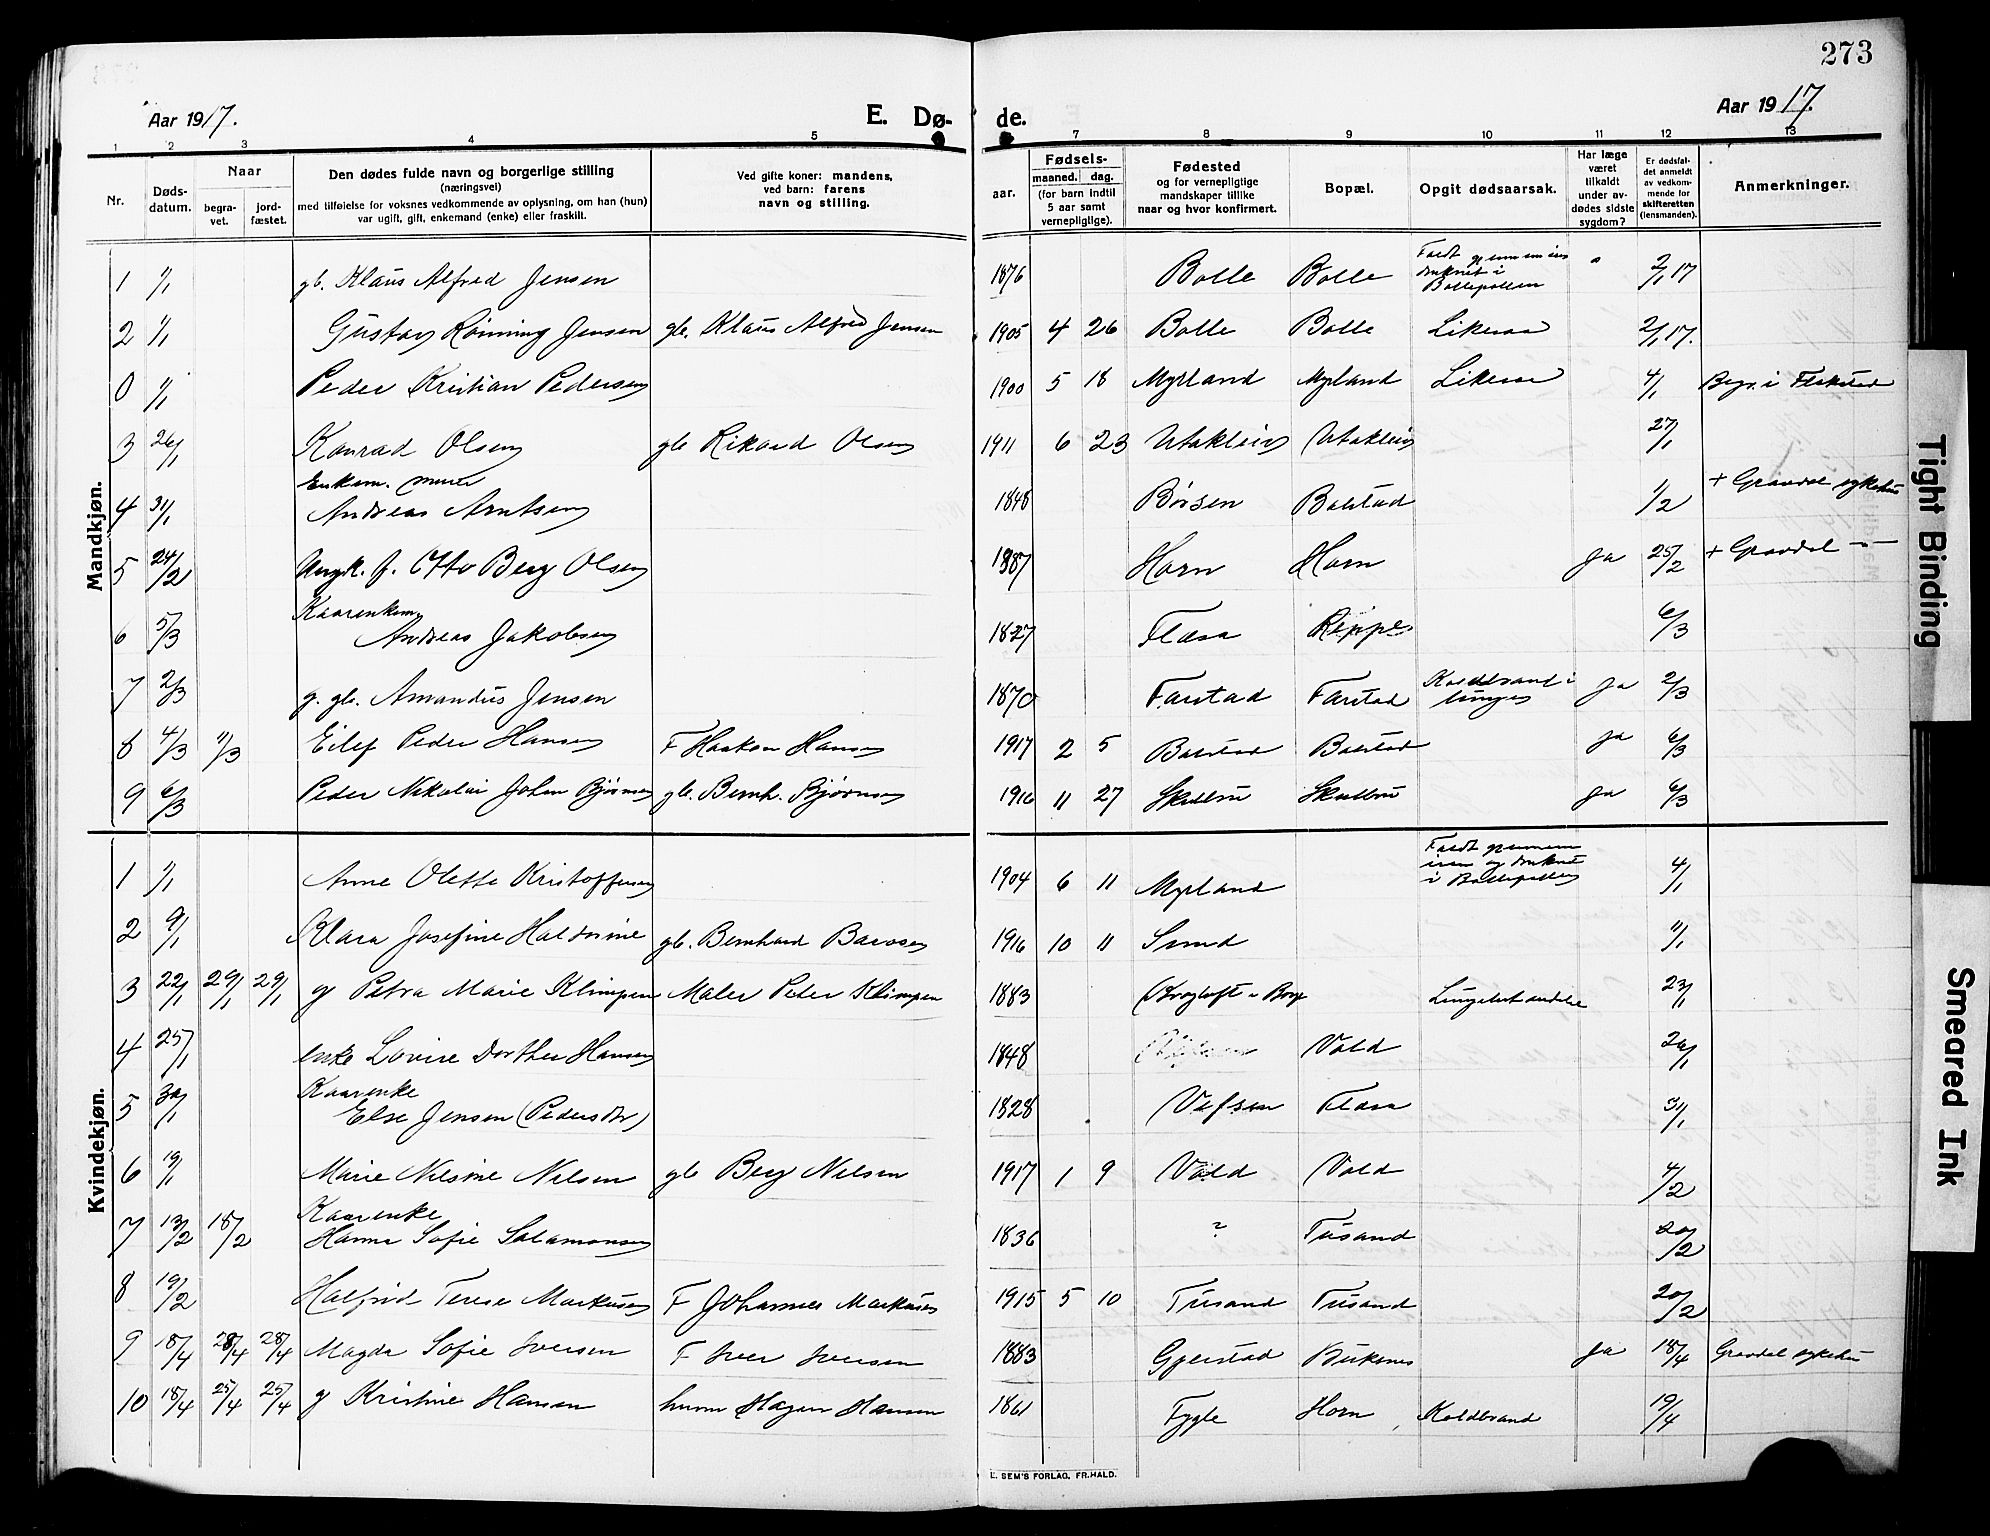 273
Aar 1917.
E. Dø-
de.
Aar 1917.
1 2 3 4 5
7 8 9 10 11 12 13
Nr.
Døds-
datum.
Naar
begra-
vet.
jord-
fæstet.
Den dødes fulde navn og borgerlige stilling
(næringsvei)
med tilføielse for voksnes vedkommende av oplysning, om han (hun)
var ugift, gift, enkemand (enke) eller fraskilt.
Ved gifte koner: mandens,
ved barn: farens
navn og stilling.
Fødsels-
aar.
maaned. dag.
(for barn indtil
5 aar samt
vernepligtige).
Fødested
og for vernepligtige
mandskaper tillike
naar og hvor konfirmert.
Bopæl.
Opgit dødsaarsak.
Har læge
været
tilkaldt
under av-
dødes sidste
sygdom?
Er dødsfal-
det anmeldt
av vedkom-
mende for
skifteretten
(lensmanden).
Anmerkninger.
Mandkjøn.
1 1/1 gb. Klaus Alfred Jensen 1876 Bolle Bolle Faldt gjennem isen druknet i Bollepollen 2/1 17
2 1/1 Gustav Rønning Jensen gb. Klaus Alfred Jensen 1905 4 26 Bolle Bolle Likesaa 2/1 17.
0 1/1 Peder Kristian Pedersen 1900 5 18 Myrland Myrland Likesaa 4/1 Begr. i Flakstad
3 26/1 Konrad Olsen gb Rikard Olsen 1911 6 23 Utakleiv Utakleiv 27/1
Enkem. murer
4 31/1 Andreas Arntsen 1848 Børsen Bolstad 1/2 + Gravdal sykehus
5 24/2 Ungk. f. Otto Berg Olsen 1887 Horn Horn Ja 25/2 + Gravdal —
Kaarenkem.
6 5/3 Andreas Jakobsen 1827 Flæsa Reppe 6/3
7 2/3 g. gb. Amandus Jensen 1870 Farstad Farstad Koldbrand i lunger Ja 2/3
8 4/3 11/3 Eilef Peder Hansen F Haakon Hansen 1917 2 5 Bolstad Bolstad Ja 6/3
9 6/3 Peder Nikolai Johan Bjørnsen gb. Bernh. Bjørnsen 1916 11 27 Skulbru Skulbru Ja 6/3
Kvindekjøn.
1 1/1 Anne Olette Kristoffersen 1904 6 11 Myrland Faldt gjennem isen og druknet i Bollepollen 4/1
2 9/1 Klara Josefine Haldorine gb. Bernhard 1916 10 11 Sund 11/1
3 22/1 29/1 29/1 g Petra Marie Klimpen Maler Peder Klimpen 1883 Borge 23/1
4 25/1 enke Lovise Dorthea Hansen 1848 Vold 26/1
Kaarenke
5 30/1 Else Jensen (Pedersdtr) 1828 Vefsen Flæsa 31/1
6 19/1 Marie Nilsine Nilsen gb Berg Nilsen 1917 1 9 Vold Vold 4/2
Kaarenke
7 13/2 18/2 Hanna Sofie Salamonsen 1836 ? Tusand 20/2
8 19/2 Halfrid Terese Markusen F Johannes Markusen 1915 5 10 Tusand Tusand 20/2
9 18/4 28/4 28/4 Magda Sofie Iversen F Iver Iversen 1883 Gjerstad Buksnes Ja 18/4 Gravdal sykehus
10 18/4 25/4 25/4 g Kristine Hansen husm Hagen Hansen 1861 Fygle Horn Koldbrand 19/4
L. SEM'S FORLAG, FR.HALD.
Tight Binding
Smeared Ink